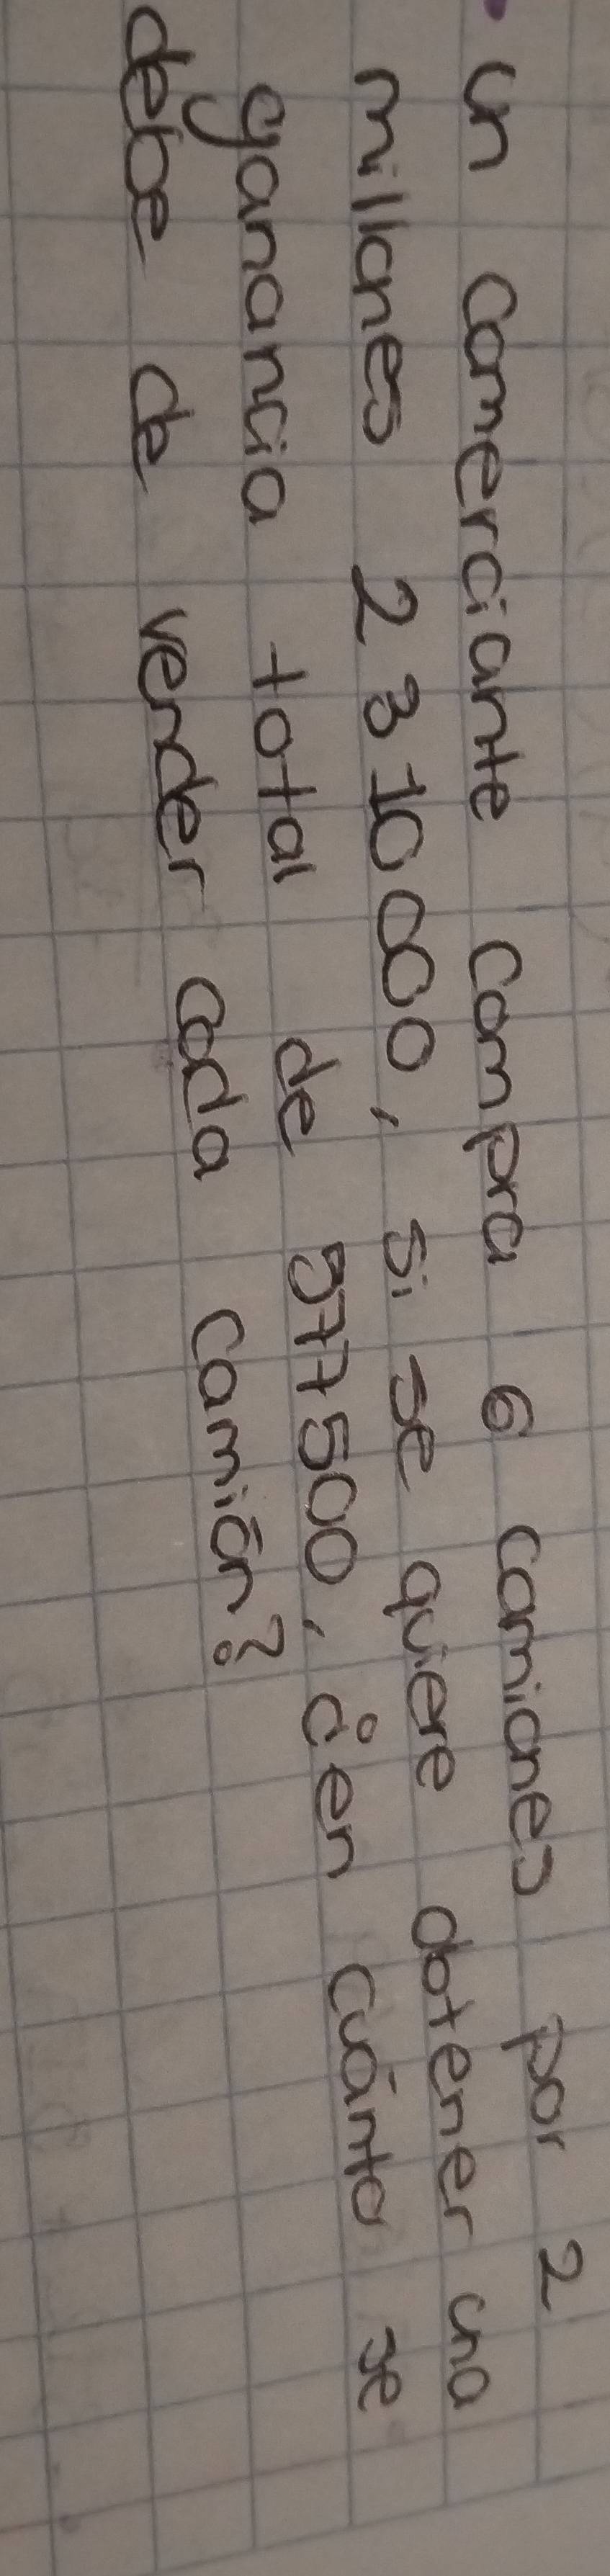 un comerciante compra 6 camiones por 2
millones 2310000, si se quiere obtener una
ganancia total de 577500, ¿en cuánto se
debe de vender cada camión?